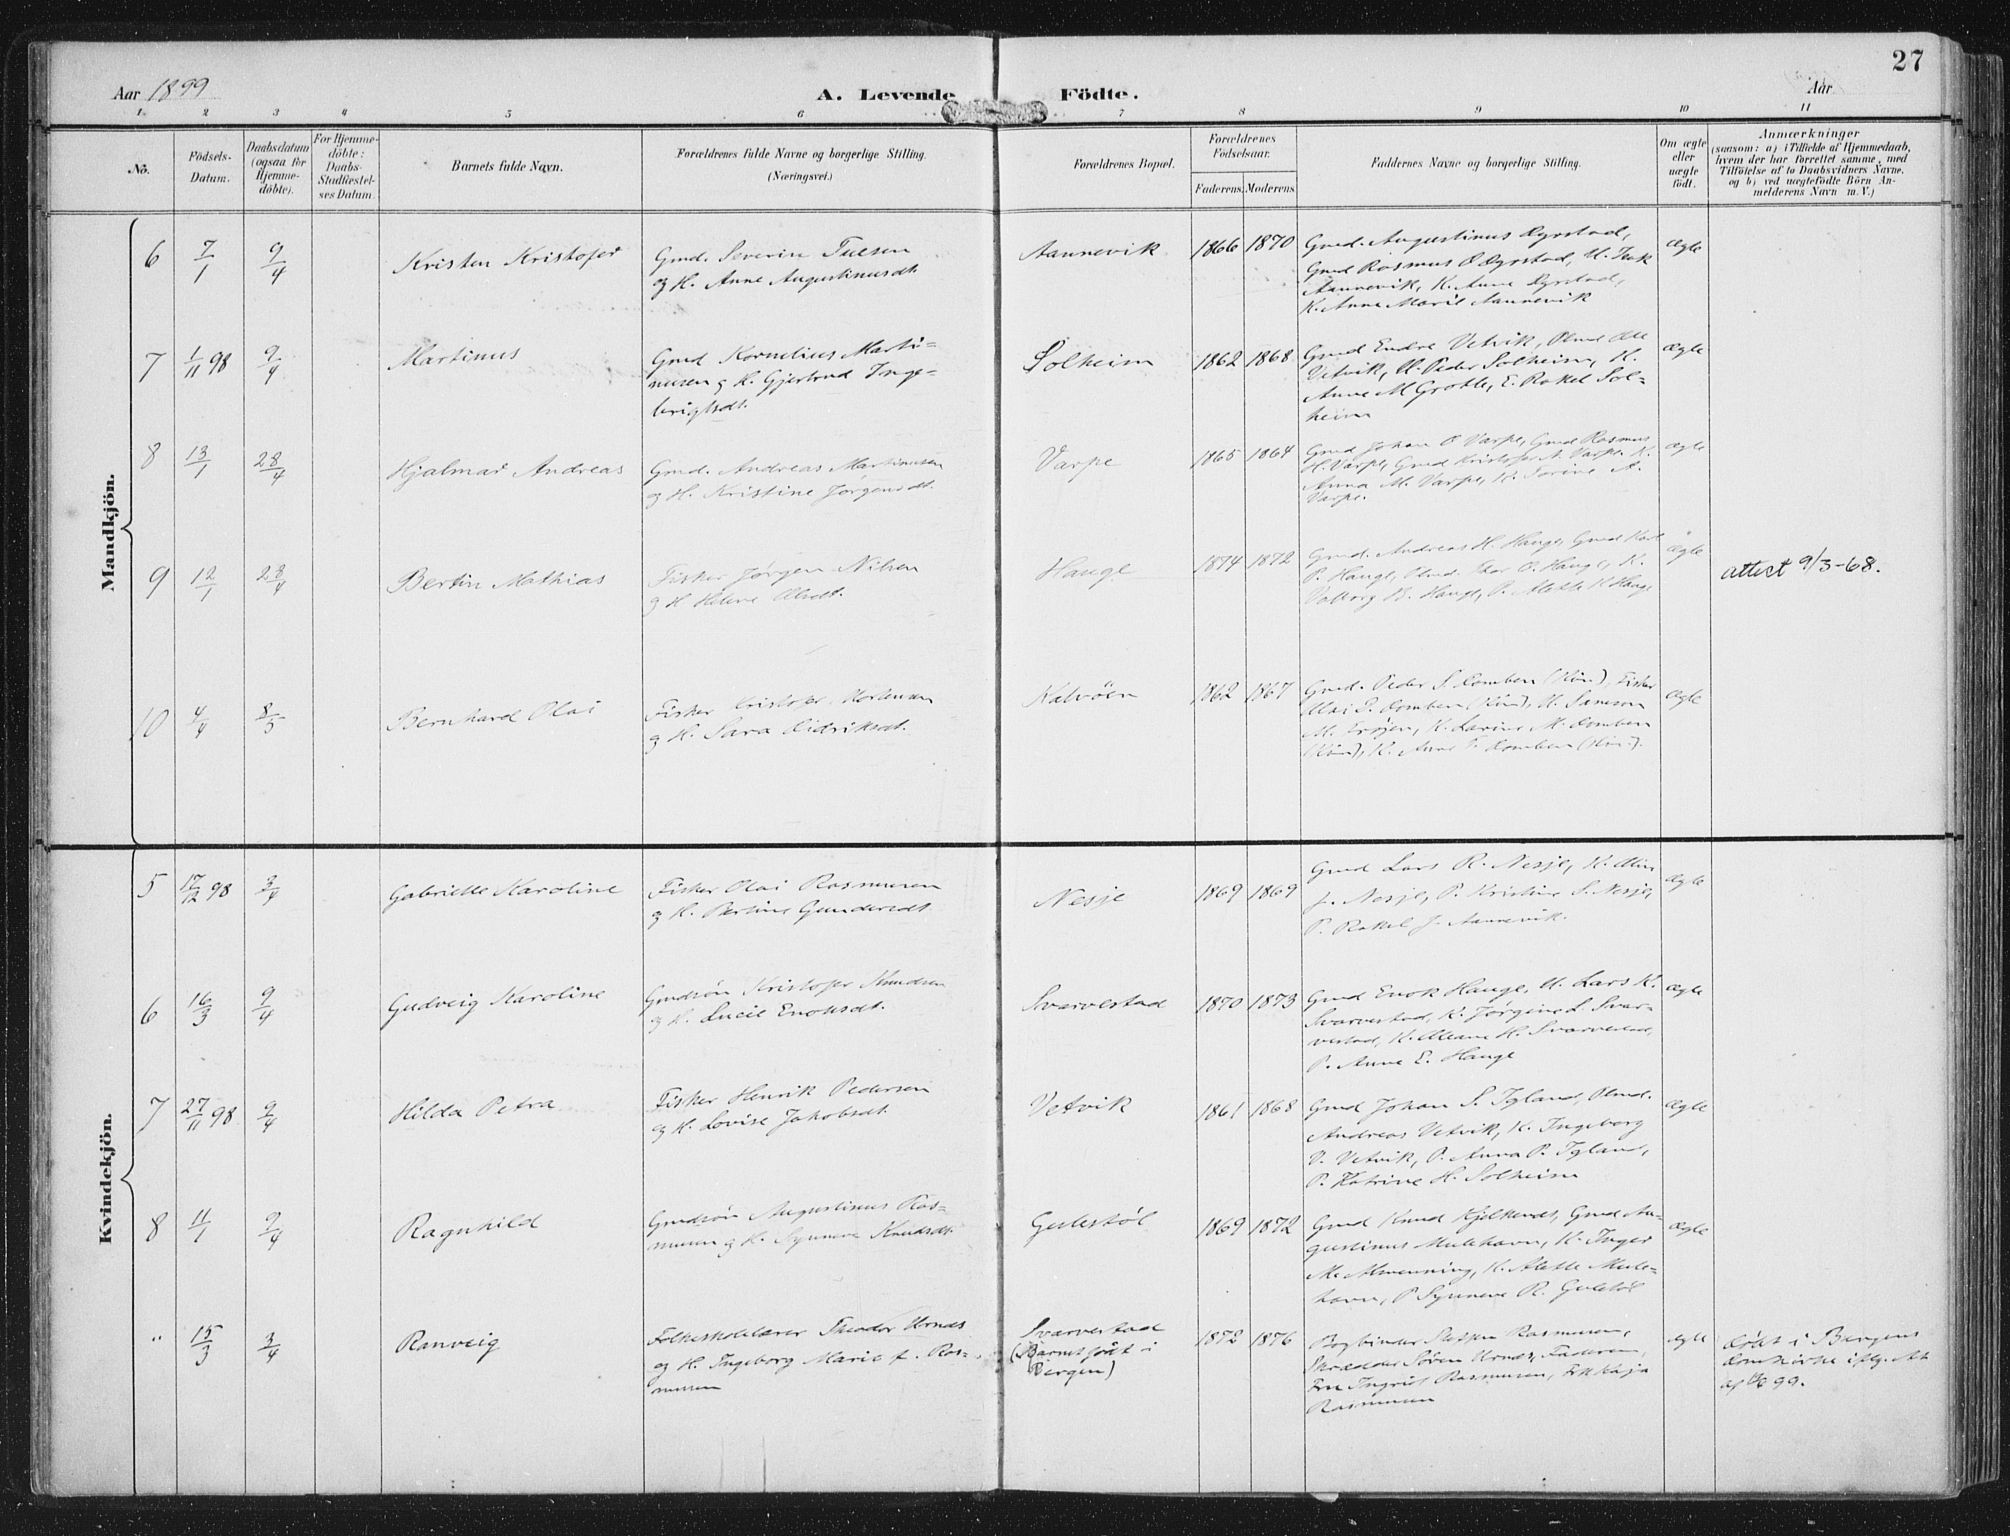 27
Aar 1899
A. Levende
Födte.
Aar
1 2 3 4 5 6 7 8 9 10 11
No.
Födsels-
Datum.
Daabsdatum
(ogsaa for
Hjemme-
döbte).
For Hjemme-
döbte:
Daabs-
Stadfæstel-
ses Datum.
Barnets fulde Navn.
Forældrenes fulde Navne og borgerlige Stilling.
(Næringsvei.)
Forældrenes Bopæl.
Forældrenes
Födselsaar.
Faderens. Moderens.
Faddernes Navne og borgerlige Stilling.
Om ægte
eller
uægte
födt.
Anmærkninger
(saasom: a) i Tilfælde af Hjemmedaab,
hvem der har forrettet samme, med
Tilföielse af to Daabsvidners Navne.
og b) ved uægtefödte Börn An-
melderens Navn m. V.)
Mandkjön.
6 7/1 9/4 Kristen Kristofer
Gmd. Severin
og H. Anne Augustinusdt.
Aannevik 1866 1870
Gmd. Augustinus Dyrstad,
Gmd Rasmus Dyrstad, U.
Aannevik, K. Anne Dyrstad,
K. Anne Marie Aannevik
ægte
7 1/11 98 9/4 Martinus
Gmd Kornelius Marti-
nusen og H. Gjertrud Inge-
brigtsdt.
Solheim 1862 1868
Gmd Endre Vetvik, Ole
Vetvik, U. Peder Solheim, K.
Anne M Grotle, E. Rakel Sol-
heim
ægte
8 13/1 28/4 Hjalmar Andreas
Gmd. Andreas Martinusen
og H. Kristine Jørgensdt.
Varpe 1865 1864
Gmd Johan O Varpe, Gmd Rasmus
H. Varpe, Gmd Kristofer A. Varpe, K.
Anna M. Varpe, K. Sørine A.
Varpe.
ægte
9 12/1 28/4 Bertin Mathias
Fisker Jørgen Nilsen
og H Helene Olsdt.
Hauge 1874 1872
Gmd. Andreas H. Hauge, Gmd Karl
P. Hauge, O. Hauge, K.
Valborg B. Hauge, P. Alette K Hauge
ægte
attest 9/3-68.
10 4/4 8/5 Bernhard Olai
Fisker Kristofer Mortensen
og H. Sara Didriksdt.
Kalvöen 1862 1867
Gmd. Peder S. Domben (Kinn), Fisker
Olai P. Domben (Kinn), U. Samson
M. K. Larine M. Domben
(Kinn), K. Anne T. Domben (Kinn).
ægte
Kvindekjön.
5 17/12 98 3/4 Gabrielle Karoline
Fisker Olai Rasmusen
og H. Bertine Gundersdt.
Nesje 1869 1869
Gmd Lars R. Nesje, K. Elin
J. Nesje, P. Kristine S. Nesje,
P. Rakel J. Aannevik.
ægte
6 16/3 9/4 Gudveig Karoline
Gmdsön Kristofer Knudsen
og H. Lucie Enoksdt.
Svarvestad 1870 1873
Gmd Enok Hauge, U. Lars K.
Svarvestad, K. Jørgine L. Svar-
vestad, K. H. Svarvestad,
P. Anne E. Hauge
ægte
7 27/11 98 9/4 Hilda Petra
Fisker Henrik Pedersen
og H. Lovise Jakobsdt.
Vetvik 1861 1868
Gmd Johan S. Igland,
Andreas Vetvik, K. Ingeborg
V. Vetvik, P. Anna P. Igland,
P. Katrine H. Solheim
ægte
8 11/1 9/4 Ragnhild
Gmdsön Augustinus Ras-
musen og H. Synneve Knudsdt.
Gulestöl 1869 1872
Gmd Knud Gmd Au-
gustinus Mulehavn, K. Inger
M. Almenning, K. Alette Mule-
havn, P Synneve R. Gulestöl
ægte
" 15/3 3/4 Ranveig
Folkeskolelærer Theodor Urnæs
og H. Ingeborg Marie f. Ras-
musen
Svarvestad
(Barnet födt i
Bergen)
1872 1876
Bogbinder Rasmusen,
Skrædder Sören Urnæs, Faderen,
Fru Ingrid Rasmusen, Frk Kaja
Rasmusen
ægte
Döbt i Bergens
Domkirke iflg. Att
af 99.